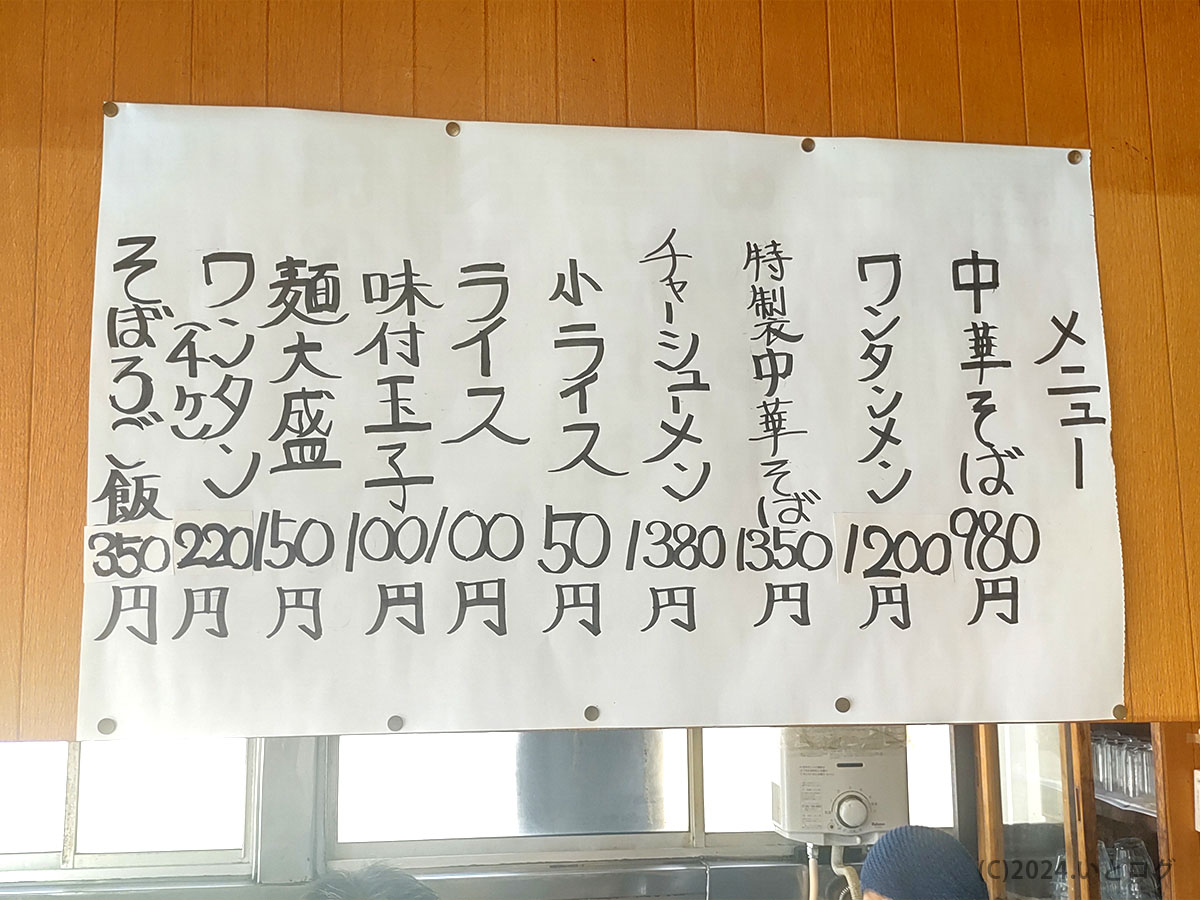 メニュー
中華そば 980円
ワンタンメン 1200円
特製中華そば 1350円
チャーシューメン 1380円
小ライス 50円
ライス 100円
味付玉子 100円
麺大盛 150円
ワンタン(4ケ) 220円
そぼろご飯 350円
(C)2024.いとログ